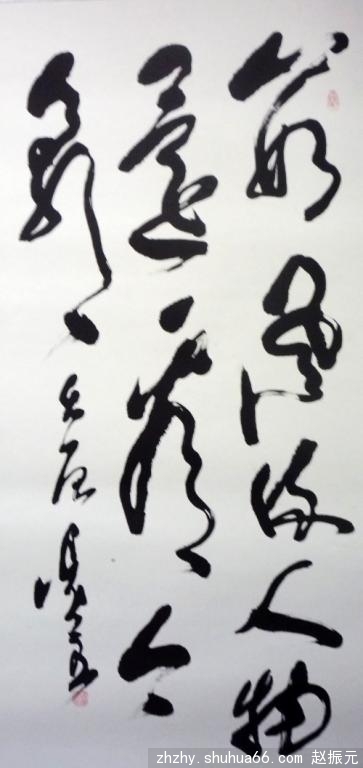 数风流人物
还看今
朝
zhzhy.shuhua66.com 赵振元